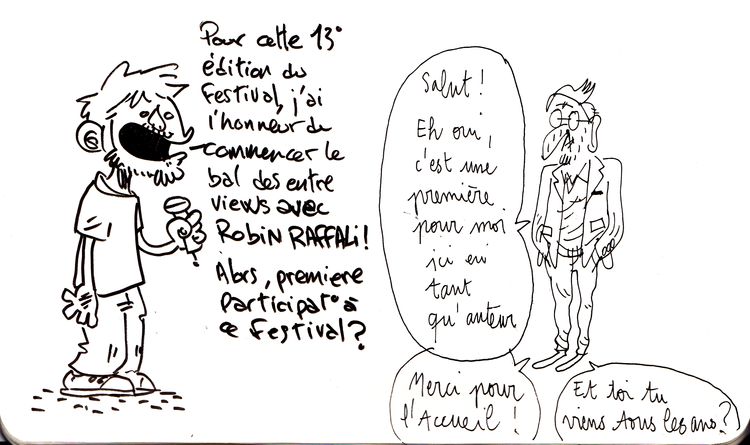 Pour cette 13°
édition du
Festival, j'ai
l'honneur de
commencer le
bal des entre
views avec
Robin RAFFALi!
Alors, première
participat° à
ce Festival?
Salut!
Eh oui,
c'est une
première
pour moi
ici en
tant
qu'auteur
Merci pour
l'Accueil!
Et toi tu
viens tous les ans?